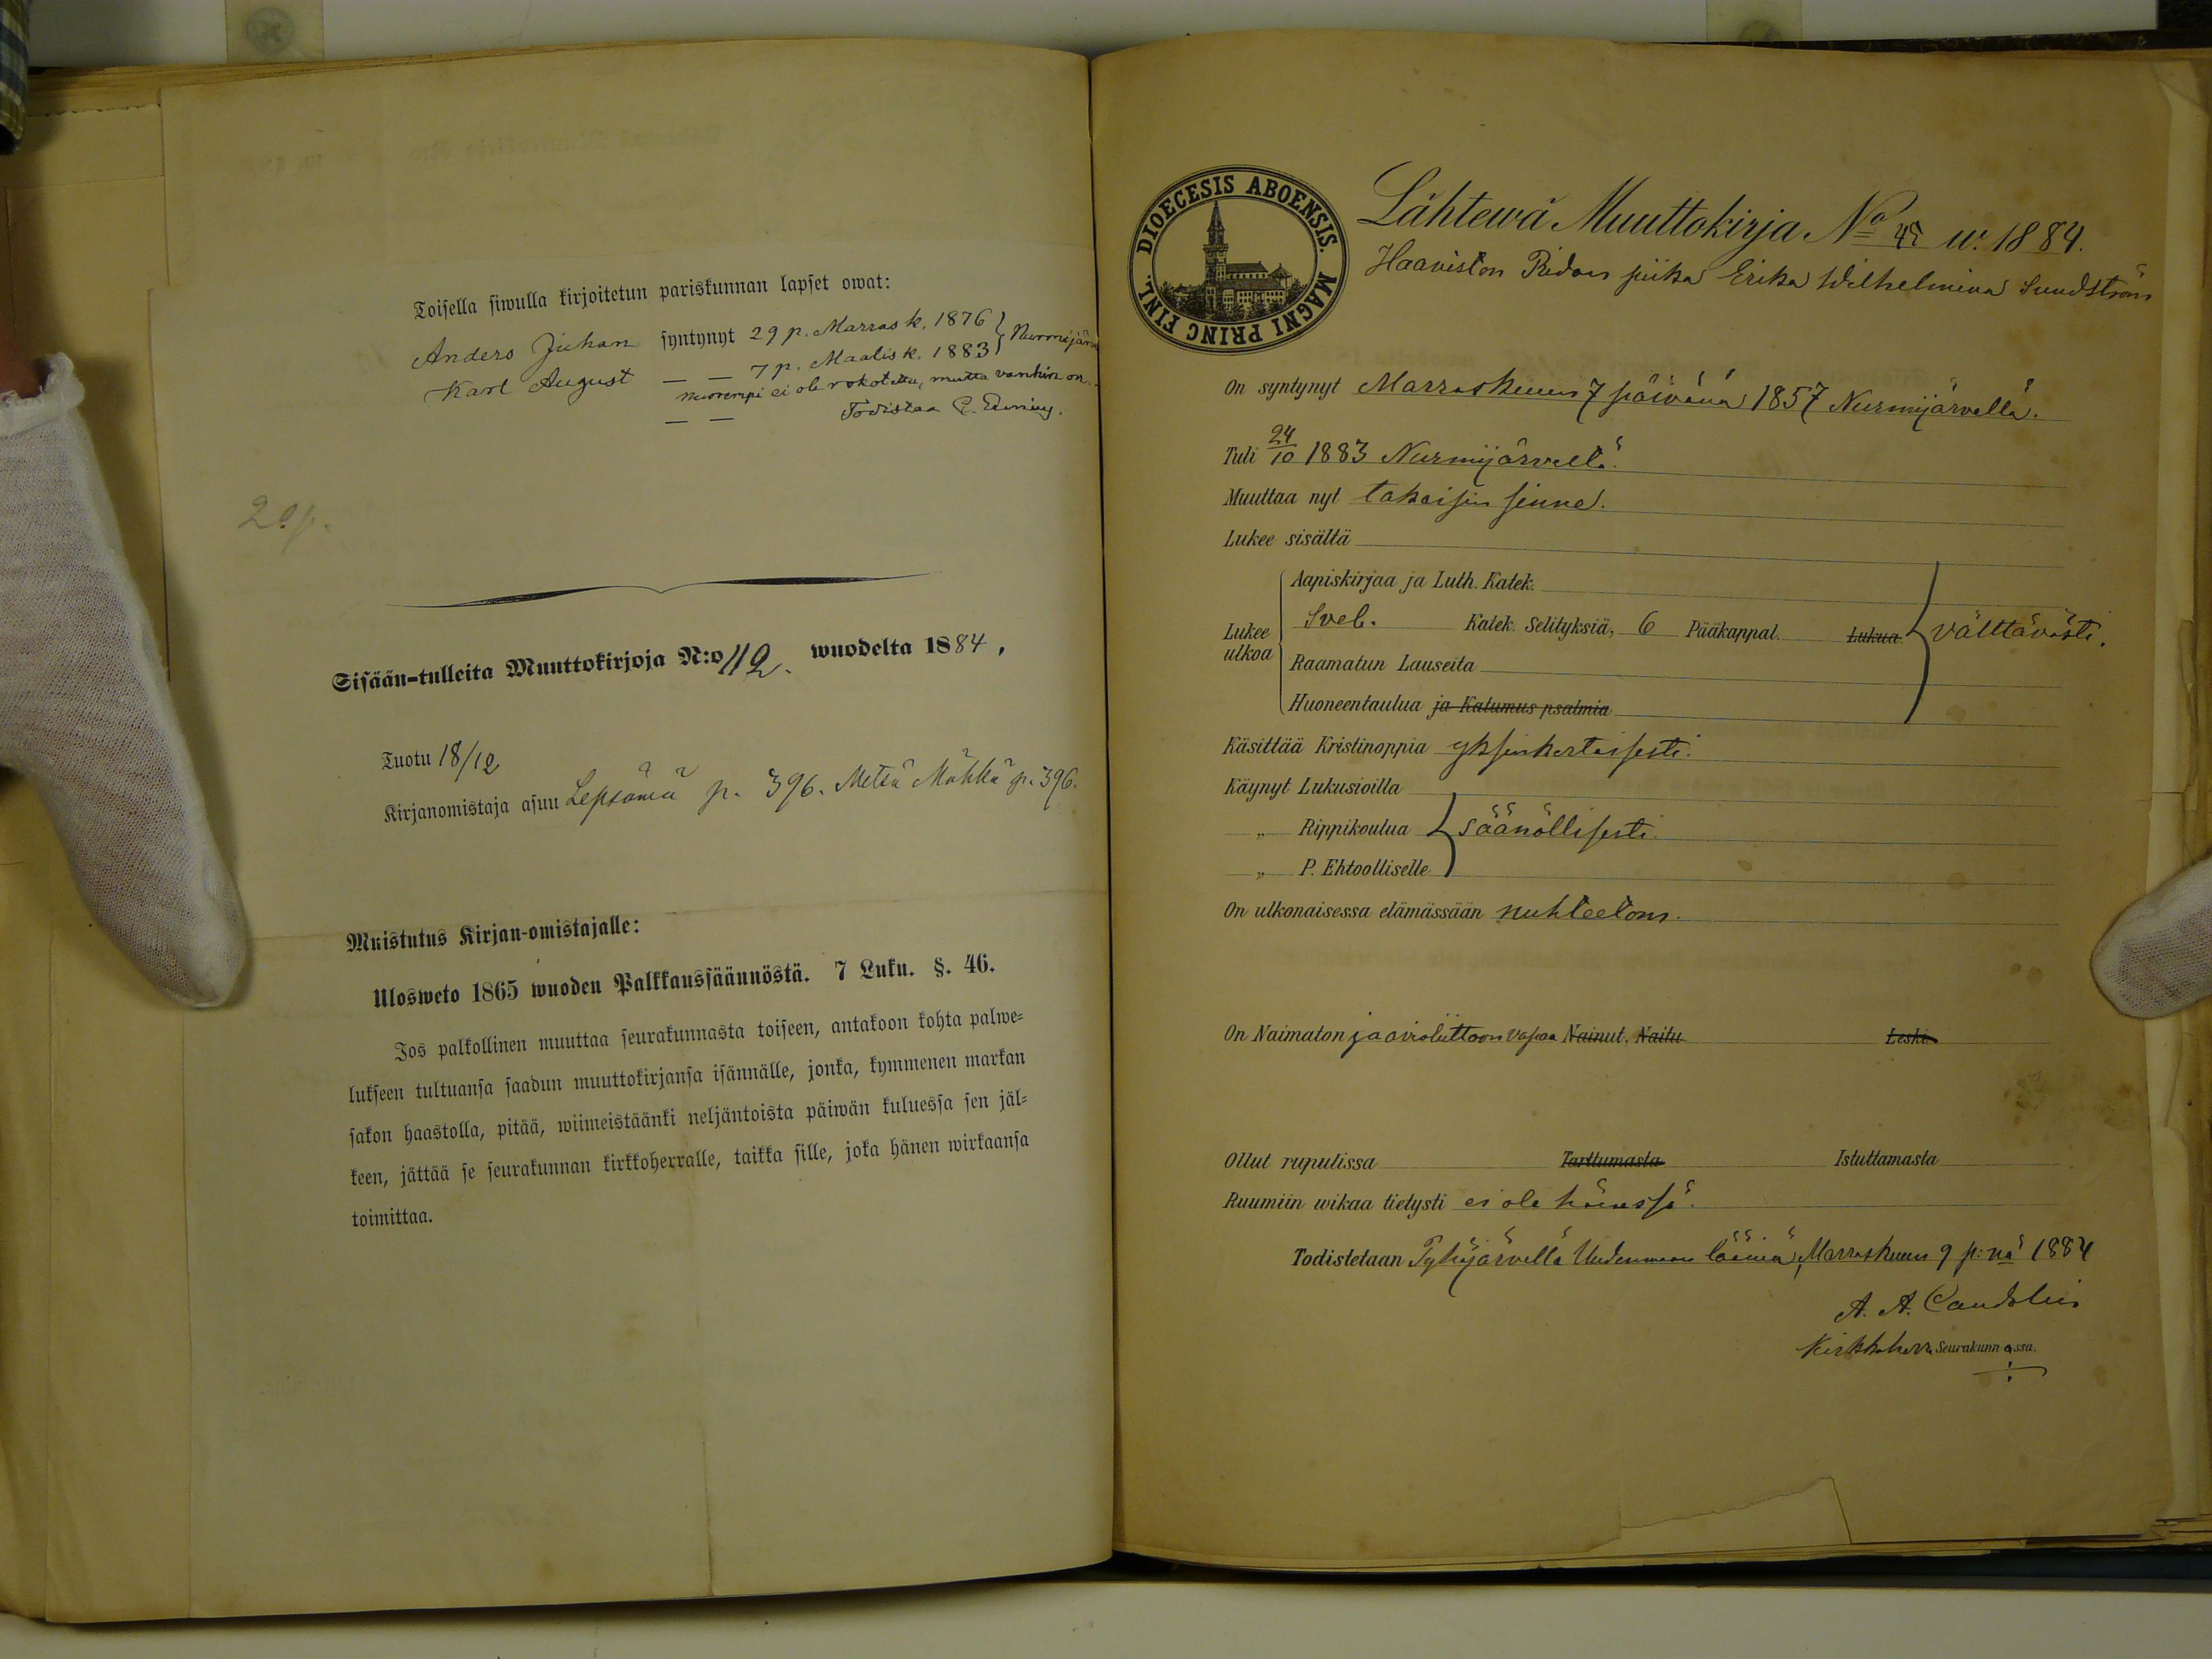 Toisella siwulla kirjoitetun pariskunnan lapset owat:
Anders Juhan syntynyt 29 p. Marrask. 1876 } Nurmijärvi
Karl August — — 7 p. Maalisk. 1883
Nuorempi ei ole rokotettu, mutta vanhin on.
— — Todistaa
20 p.
Sisään-tulleita Muuttokirjoja N:o 112. wuodelta 1884.
Tuotu 18/12
Kirjanomistaja asuu Lepsämä p. 396. Metsä Mähkä p. 396.
Muistutus Kirjan-omistajalle:
Ulosweto 1865 wuoden Palkkaussäännöstä. 7 Luku. §. 46.
Jos palkollinen muuttaa seurakunnasta toiseen, antakoon kohta palwe=
lukseen tultuansa saadun muuttokirjansa isännälle, jonka, kymmenen markan
sakon haastolla, pitää, wiimeistäänki neljäntoista päiwän kuluessa sen jäl=
keen, jättää se seurakunnan kirkkoherralle, taikka sille, joka hänen wirkaansa
toimittaa.
DIOECESIS ABOENSIS. MAGNI PRINC FINL.
Lähtewä Muuttokirja No 45 w. 1884.
Haaviston Ridan piika Erika Wilhelmina Sundström
On syntynyt Marraskuun 7 päivänä 1857 Nurmijärvellä.
Tuli 24/10 1883 Nurmijärveltä.
Muuttaa nyt takaisin sinne.
Lukee sisältä
Lukee ulkoa
Aapiskirjaa ja Luth. Katek.
Sveb. Katek. Selityksiä, 6 Pääkappal. Lukua välttävästi.
Raamatun Lauseita
Huoneentaulua ja Katumus psalmia
Käsittää Kristinoppia yksinkertaisesti.
Käynyt Lukusioilla
„ Rippikoulua } säänöllisesti.
„ P. Ehtoolliselle
On ulkonaisessa elämässään nuhteeton.
On Naimaton ja avioliittoon vapaa Nainut, Naitu Leski
Ollut rupulissa Tarttumasta Istuttamasta
Ruumiin wikaa tietysti ei ole hänessä.
Todistetaan Pyhäjärvellä Uudenmaan lääniä, Marraskuun 9 p:nä 1884
A. A. Candolin
Kirkkoherra Seurakunnassa.